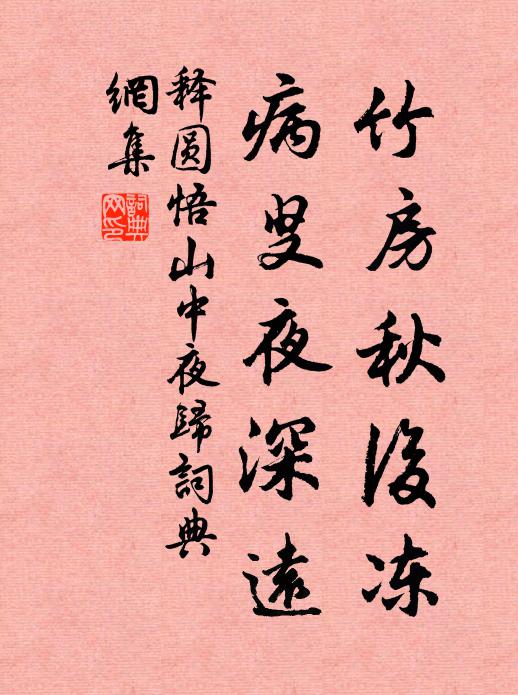 竹房秋後凍
病叟夜深遠
释圆悟山中夜歸詞典
網集
詞典
网印